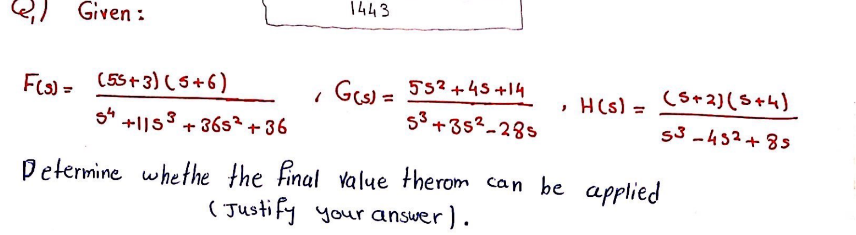 Q1) Given :
1443
F(s) = (5s+3)(s+6) / s⁴ +11s³ + 36s² + 36 , G(s) = 5s² + 4s +14 / s³ +3s² -28s , H(s) = (s+2)(s+4) / s³ - 4s² + 8s
Determine whethe the final value therom can be applied
(Justify your answer).